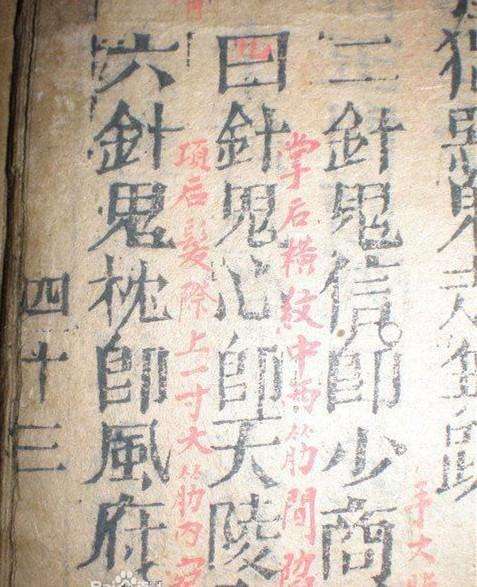 鬼
二針鬼信即少商
手大
掌后橫紋中两筋間
針鬼心即天陵
項后髮際上一寸大筋内
六針鬼枕即風府
四十三